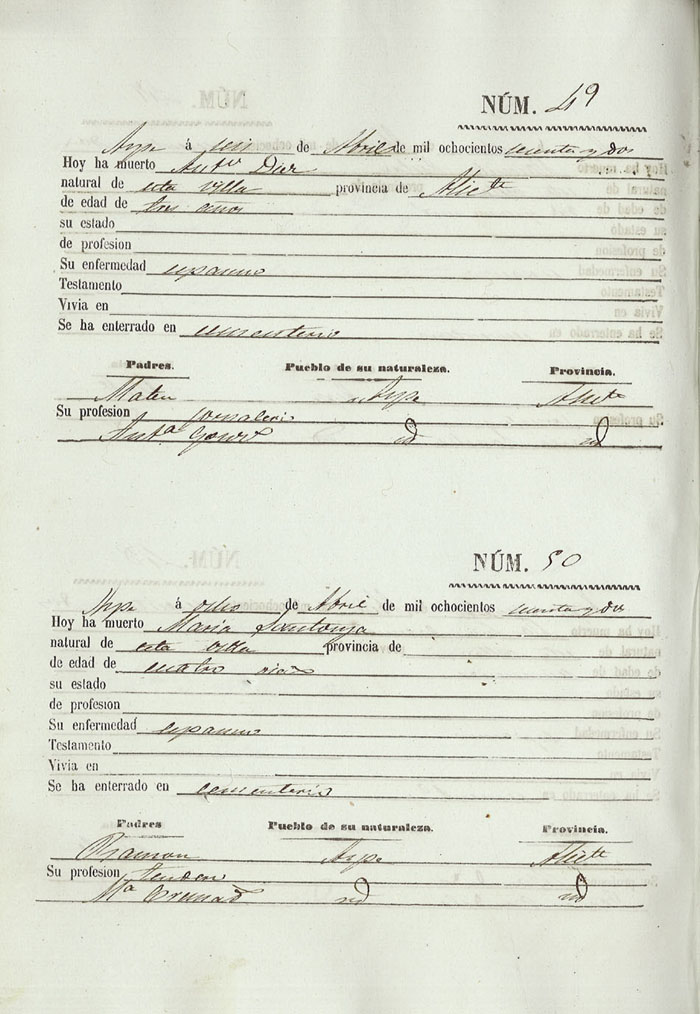 NÚM. 49
Aspe á seis de Abril de mil ochocientos cincuenta y dos
Hoy ha muerto Antº Diez
natural de esta villa provincia de Alicte
de edad de tres años
su estado
de profesion
Su enfermedad espasmo
Testamento
Vivia en
Se ha enterrado en cementerio
Padres. Pueblo de su naturaleza. Provincia.
Mateu Aspe Alicte
Su profesion Jornalero
Antª id id
NÚM. 50
Aspe á ocho de Abril de mil ochocientos cincuenta y dos
Hoy ha muerto Maria Santonja
natural de esta villa provincia de
de edad de cuatro dias
su estado
de profesion
Su enfermedad espasmo
Testamento
Vivia en
Se ha enterrado en cementerio
Padres Pueblo de su naturaleza. Provincia.
Ramon Aspe Alicte
Su profesion
Mª id id